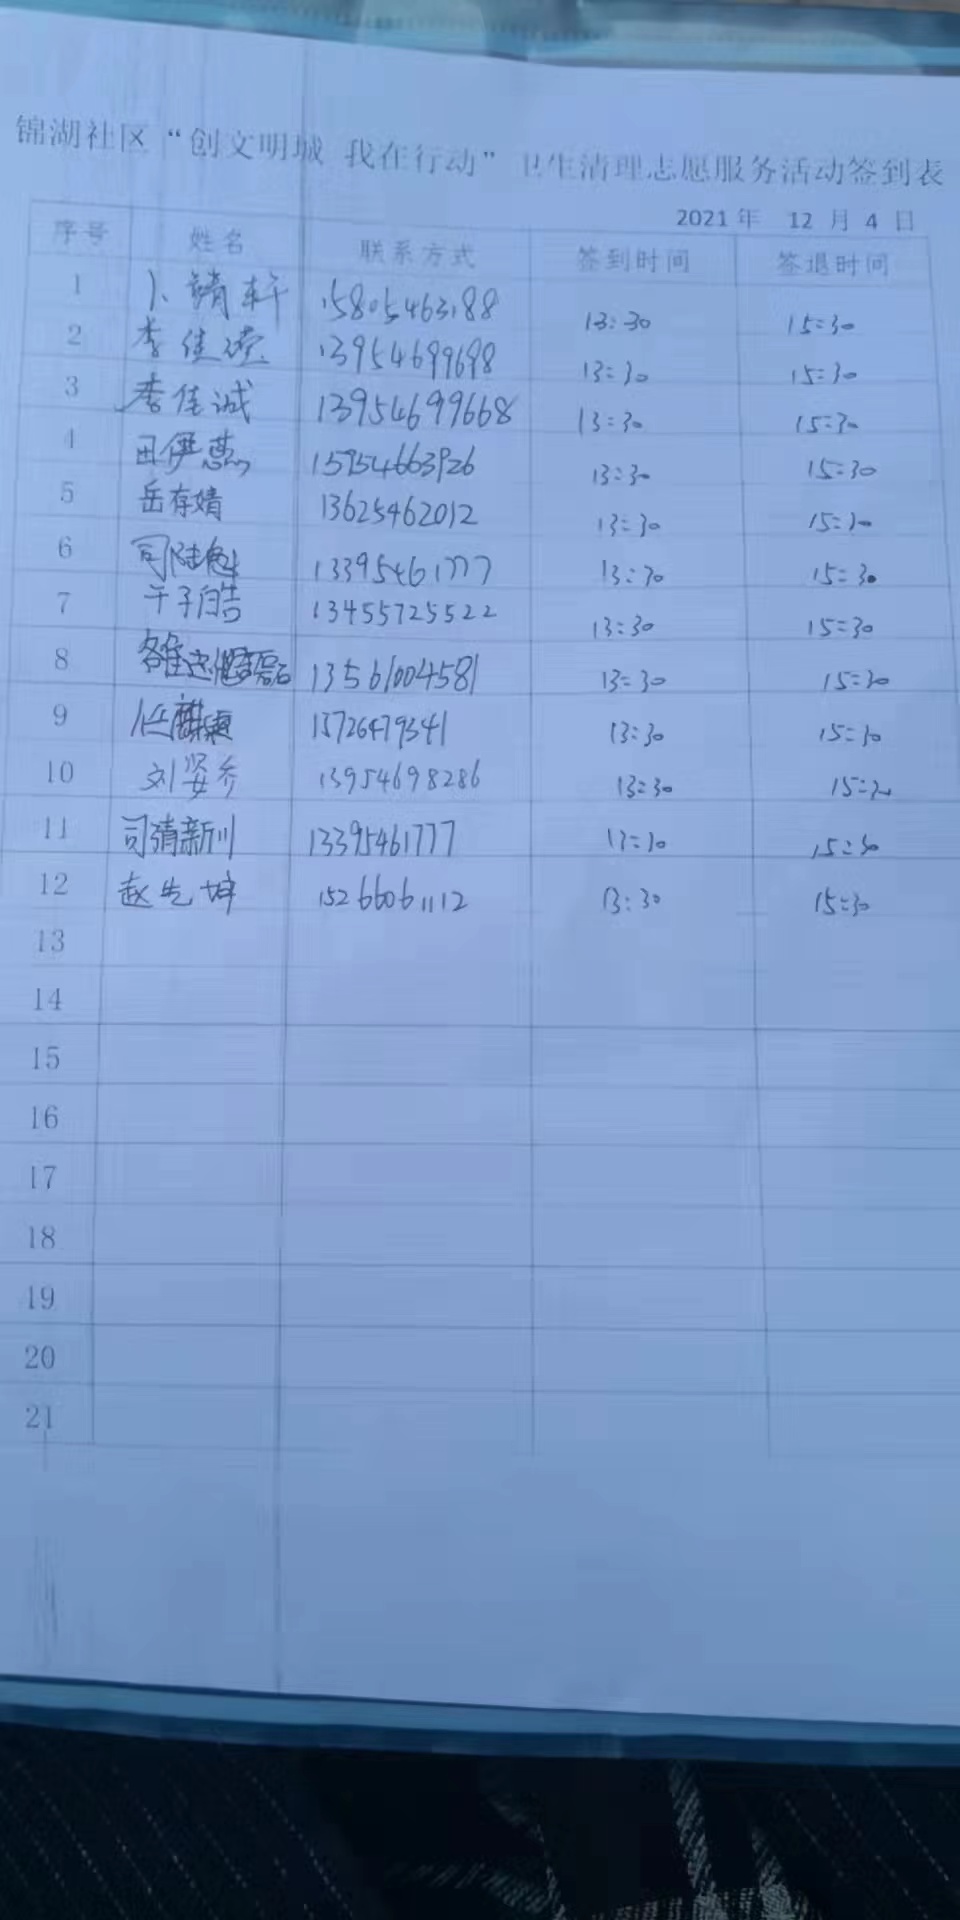 锦湖社区“创文明城 我在行动”卫生清理志愿服务活动签到表
2021 年 12 月 4 日
序号 姓名 联系方式 签到时间 签退时间
1 卜靖轩 15805463188 13:30 15:30
2 李佳 13954699698 13:30 15:30
3 李佳诚 13954699668 13:30 15:30
4 田伊蕊 15954663926 13:30 15:30
5 岳存婧 13625462012 13:30 15:30
6 司陆 13395461777 13:30 15:30
7 于子皓 13455725522 13:30 15:30
8 13561004581 13:30 15:30
9 任麒 15726479341 13:30 15:30
10 刘姿乔 13954698286 13:30 15:30
11 司清新川 13395461777 13:30 15:30
12 赵先坤 15266061112 13:30 15:30
13
14
15
16
17
18
19
20
21